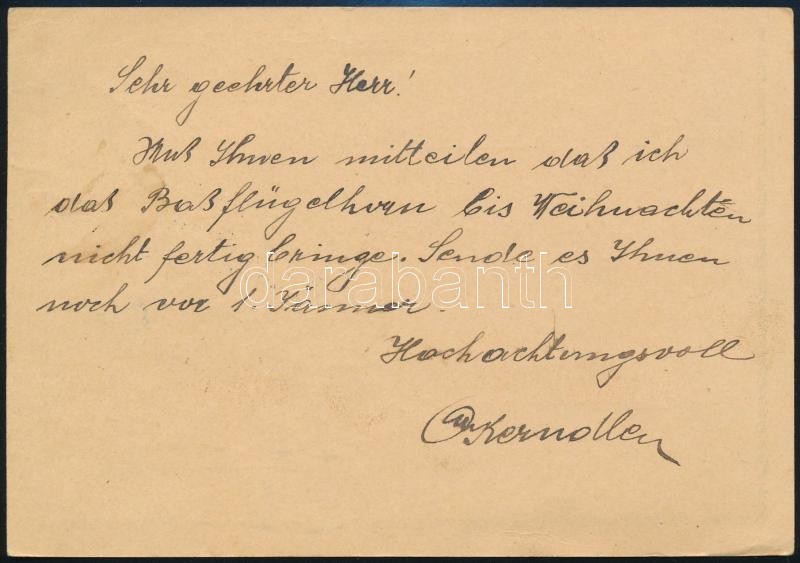 Sehr geehrter Herr!
Muß Ihnen mitteilen daß ich
daß Baßflügelhorn bis Weihnachten
nicht fertig bringe. Sende es Ihnen
noch vor 1. Jänner.
darabanth
Hochachtungsvoll
Kerndler